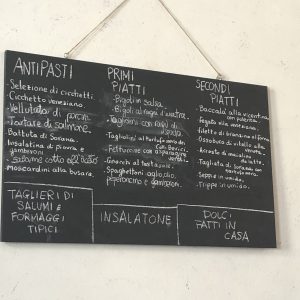 ANTIPASTI
- Selezione di cicchetti.
- Cicchetto veneziano.
- Vellutata di porcini.
- Tartare di salmone.
- Battuta di Sorana.
- Insalatina di piovra e gamberoni.
- salame cotto all'aceto
- Moscardini alla busara.
PRIMI
PIATTI
- Bigoli in salsa.
- Bigoli al ragù d'anatra.
- Tagliolini con
- Tagliolini al tartufo
- Fettuccine con
- Gnocchi al tartufo.
- Spaghettoni aglio, olio,
peperoncino e gamberoni.
SECONDI
PIATTI
- Baccalà alla vicentina
con polenta.
- Fegato alla veneziana.
- Filetto di branzino al forno
- Ossobuco di vitello alla
- Tagliata di sorana con
- Seppie in umido.
- Trippe in umido.
TAGLIERI DI
SALUMI e
FORMAGGI
TIPICI
INSALATONE
DOLCI
FATTI IN
CASA